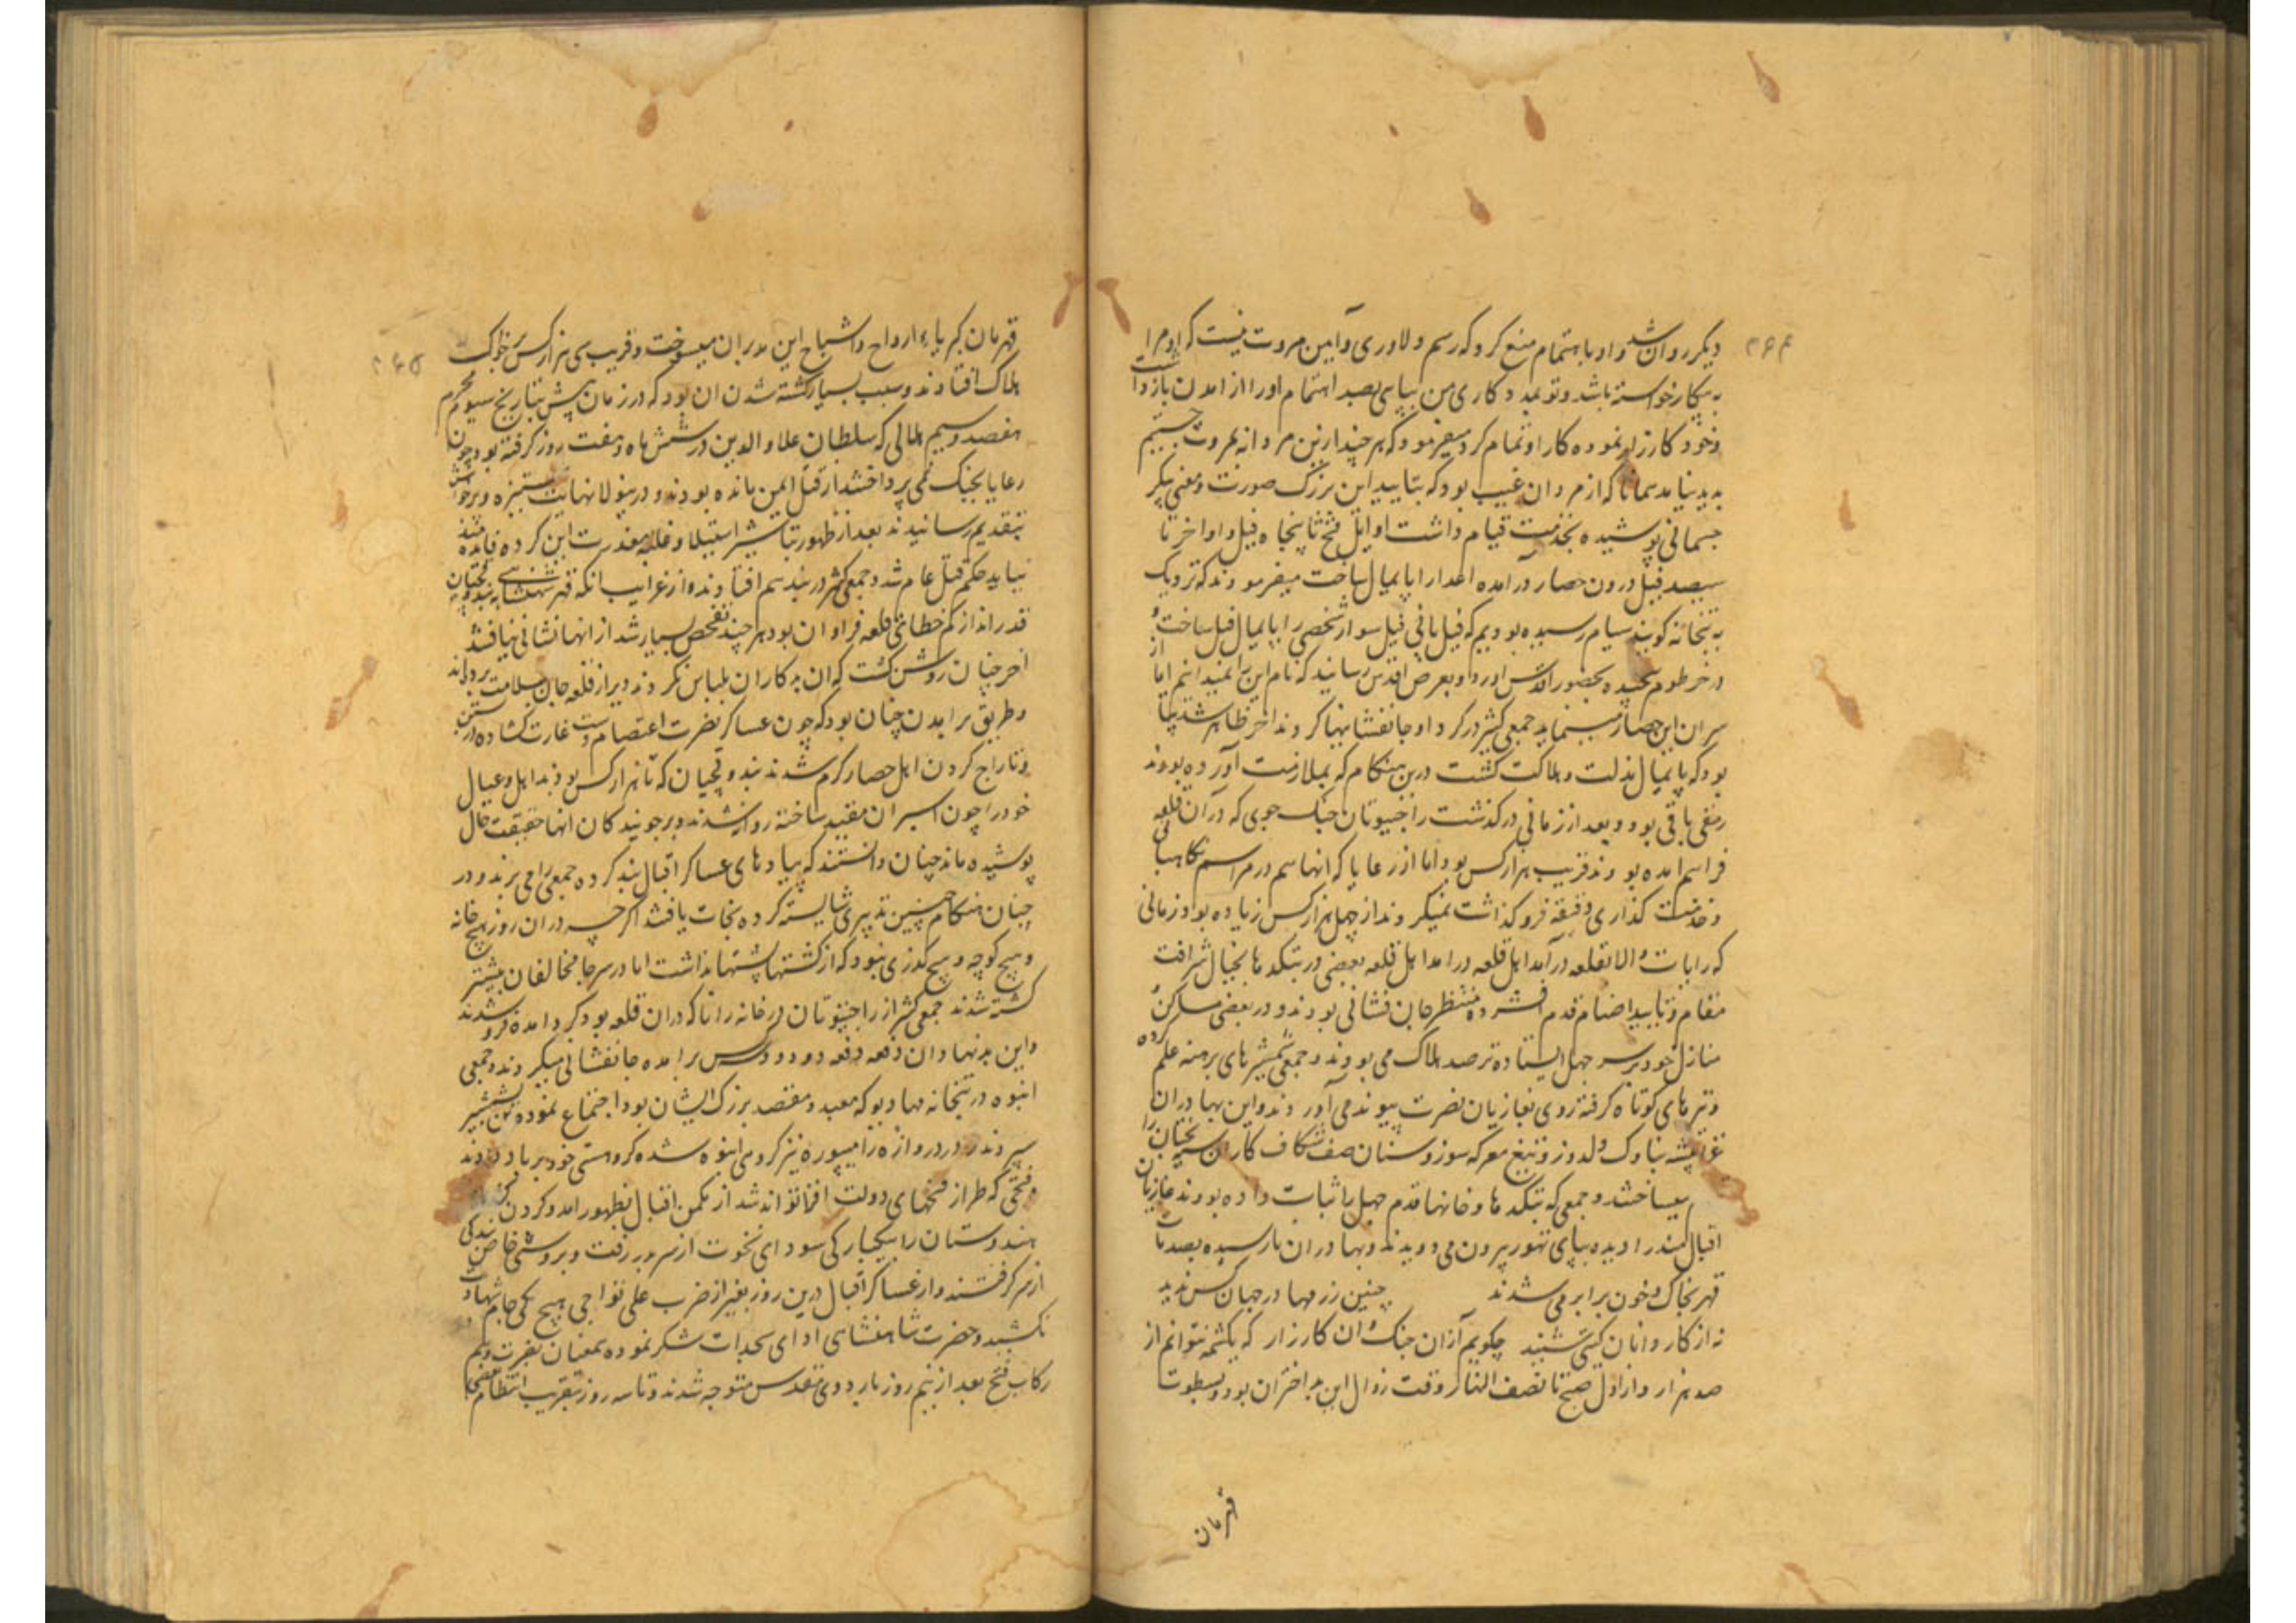 ۲۶۴
دیکر روان شد و او باهتمام منع کرد که رسم دلاوری و آیین مروت نیست که او مرا
به پیکار خواسته باشد و تو بمددکاری من بیایی بصد اهتمام او را از امدن بازداشت
و خود کارزار نموده کار او تمام کرد میفرمود که هر چند ازین مردانه بمروت جستیم
پدید نیامد همانا که از مردان غیب بود که بتایید این بزرک صورت و معنی پیکر
جسمانی پوشیده بخدمت قیام داشت اوایل فتح تا پنجاه فیل و اواخر تا
سیصد فیل درون حصار درآمده اعدا را پایمال ساخت میفرمودند که نزدیک
به بتخانه کوبند سیام رسیده بودیم که فیلبانی فیل سوار شخصی را پایمال فیل ساخته و
در خرطوم پیچیده بحضور اقدس اورد و بعرض اقدس رسانید که نام این را نمیدانم اما از
سران این حصار مینماید جمعی کثیر در کرد او جانفشانیها کردند اخر ظاهر شد پتا
بود که پایمال مذلت و هلاکت کشت درین هنکام که بملازمت آورده بودند
رمقی باقی بود و بعد از زمانی درکذشت راجپوتان جنک جوی که در آن قلعه
فراهم امده بودند قریب هزار کس بود اما از رعایا که انها هم در مراسم نکاهبانی
و خدمت کذاری دقیقه فروکذاشت نمیکردند از چهل هزار کس زیاده بود زمانی
که رایات والا بقلعه درآمد اهل قلعه بعضی در بتکدها بخیال شرافت
مقام و تایید اصنام قدم افشرده منتظر جان فشانی بودند و در بعضی مساکن و
منازل خود بر سر جهل ایستاده ترصد هلاک می بودند و جمعی شمشیرهای برهنه علم کرده
و تبرهای کوتاه کرفته روی بغازیان نصرت پیوند می آوردند و این بهادران
غزا پیشه بناوک دلدوز و تیغ معرکه سوز و سنان صف شکاف کار ان سیه بختان را
میساختند و جمعی که بتکدها و خانها قدم جهل را ثبات داده بودند غازیان
اقبالمند را دیده بپای تهور بیرون می دویدند و بهادران نارسیده بصدمات
قهر بخاک و خون برابر می شدند چنین رزمها در جهان کس ندید
نه از کاردانان کتی شنید چکویم آزان جنک و ان کارزار که یکشمه نتوانم از
صد هزار و از اول صبح تا نصف النهار وقت زوال این بد اختران بود و بسطوت
قهرمان
۲۶۵
قهرمان کبریاء ارواح و اشباح این مدبران میسوخت و قریب سی هزار کس بر خاک
هلاک افتادند و سبب بسیار کشته شدن ان بود که در زمان پیش بتاریخ سیوم محرم
هفصد و سیم هلالی که سلطان علاو الدین در شش ماه و هفت روز کرفته بود چون
رعایا بجنک نمی پرداختند از قتل ایمن مانده بودند و درینولا نهایت ستیزه و پرخاش
بتقدیم رسانیدند بعد از ظهور تباشیر استیلا و غلبه معذرت این کرده فایده مند
نیاید حکم قتل عام شد و جمعی کثیر در بند هم افتادند و از غرایب انکه قهر شاهنشاهی بر بندوقچیان
قدرانداز کم خطای قلعه فراوان بود هر چند تفحص بسیار شد از انها نشانی نیافتند
اخر چنان روشن کشت که ان بدکاران بلباس مکر و تدویر از قلعه جان بسلامت برده اند
و طریق برامدن چنان بود که چون عساکر نصرت اعتصام دست غارت کشاده از بستن
و تاراج کردن اهل حصار کرم شدند بندوقچیان که تا هزار کس بودند اهل و عیال
خود را چون اسیران مقید ساخته روان شدند و بر جونیدکان انها حقیقت حال
پوشیده مانده چنان دانستند که پیادهای عساکر اقبال بند کرده جمعی را می برند و در
چنان هنکام چنین تدبیری شایسته کرده نجات یافتند اکرچه در ان روز هیچ خانه
و هیچ کوچه و هیچ کذری نبود که از کشتها پشتها نداشت اما در سه جا مخالفان بیشتر
کشته شدند جمعی کثیر از راجپوتان در خانه رانا که دران قلعه بود کرد امده فرو شدند
و این بدنهادان دفعه دفعه دو دو کس برامده جانفشانی میکردند و جمعی
انبوه در بتخانه مهادیو که معبد و مقصد بزرک ایشان بود اجتماع نموده تن بشمشیر
سپردند و در دروازه رامپوره نیز کروهی انبوه شده کرو هستی خود بر باد دادند
و فتحی که طراز فتحهای دولت افزا تواند شد از مکمن اقبال بظهور امد و کردن کشان
هندوستان را یکبارکی سودای نخوت از سر بدر رفت و بروشی خاص بندکی
از سر کرفتند و از عساکر اقبال درین روز بغیر از ضرب علی تواجی هیچ یکی جام شهادت
نکشید و حضرت شاهنشاهی ادای سجدات شکر نموده بعنان نصرت و هم
رکاب فتح بعد از نیم روز باردوی مقدس متوجه شدند و تا سه روز بتقریب انتظام بعضی